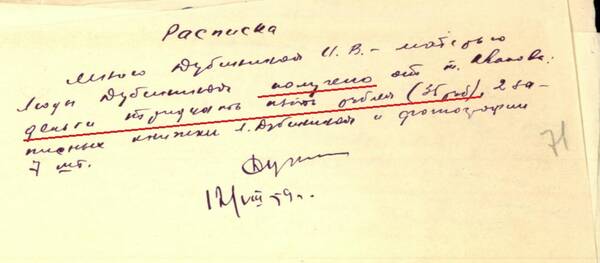 Расписка
Мною Дубининой И.В. – матерью
Люды Дубининой получено от т. Иванова:
деньги тридцать пять рублей (35 руб), 2 за-
писных книжки Л. Дубининой и фотографии
7 шт.
12/VIII 59 г.
71